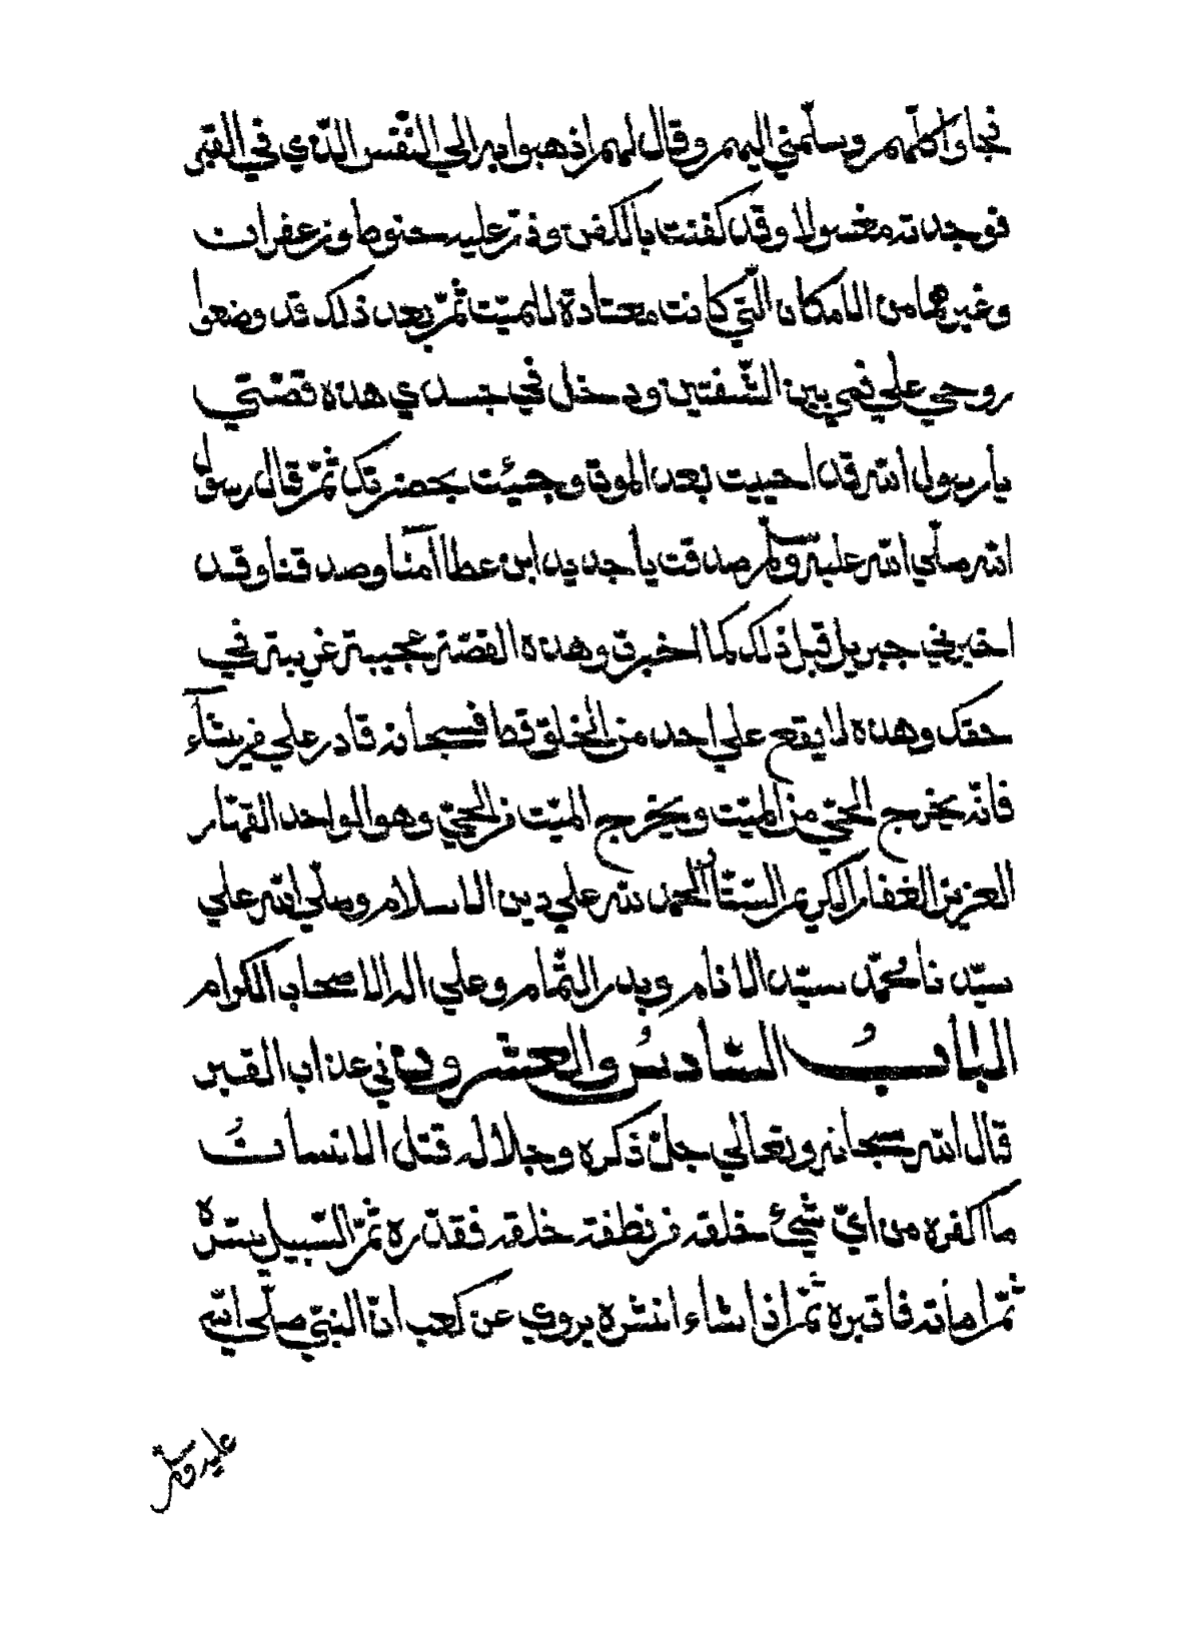 فجاؤا كلّهم وسلّمني اليهم وقال لهم اذهبوا به الي النّفس الّذي في القبر
فوجدته مغسولا وقد كفنت بالكفن وذرّ عليه حنوط وزعفران
وغيرهما من الامكان الّتي كانت معتادة للميّت ثمّ بعد ذلك قد وضعوا
روحي علي فمي بين الشّفتين ودخل في جسدي هذه قصّتي
يارسول الله قد احييت بعد الموت وجيئت بحضرتك ثمّ قال رسول
الله صلّي الله عليه وسلم صدقت ياجديد ابن عطا آمنّا وصدقنا وقد
اخبرني جبريل قبل ذلك كما اخبرت وهذه القصّة عجيبة غريبة في
حقك وهذه لا يقع علي احد من الخلق قط فسبحانه قادر علي من يشآء
فانّه يخرج الحيّ من الميّت ويخرج الميّت من الحيّ وهو الواحد القهّار
العزيز الغفار الكريم السّتّار الحمد لله علي دين الاسلام وصلّي الله علي
سيّدنا محمّد سيّد الانام وبدر التّمام وعلي اله الاصحاب الكرام
البابُ السّادسُ والعشرون في عذاب القبر
قال الله سبحانه وتعالي جلّ ذكره وجلاله قتل الانسانُ
ما اكفره من ايّ شيئ خلقه من نطفة خلقه فقدّره ثمّ السّبيل يسّره
ثمّ اماته فاقبره ثمّ اذا شاء انشره يروي عن كعب انّ النبيّ صلّي الله
عليه وسلم